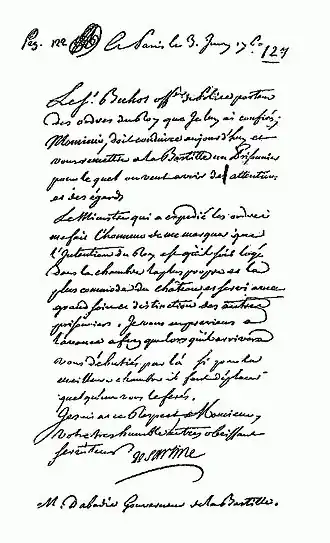 Paris le 3. 1760
127
Le Sr. Buhot offr. de Police porteur
des ordres du Roy que Je luy ai confiés,
Monsieur, doit conduire aujourd'huy et
vous remettre a la Bastille un Prisonier
pour le quel on veut avoir des attentions
et des égards
Le Ministre qui a expedié les ordres
me fait l'honneur de me marquer que
l'Intention du Roy est qu'il soit logé
dans la chambre la plus propre et la
plus commode du chateau et servi avec
grand soin et distinction des autres
prisoniers. Je vous en previens
a fin que lors qu'il arrivera
vous debutiés par là si pour la
meilleure chambre il faut déplacer
quelqu'un vous le ferés.
Je suis avec Respect Monsieur,
votre tres humble et tres obeissant
serviteur
De Sartine
M. Dabadie Gouverneur de la Bastille.